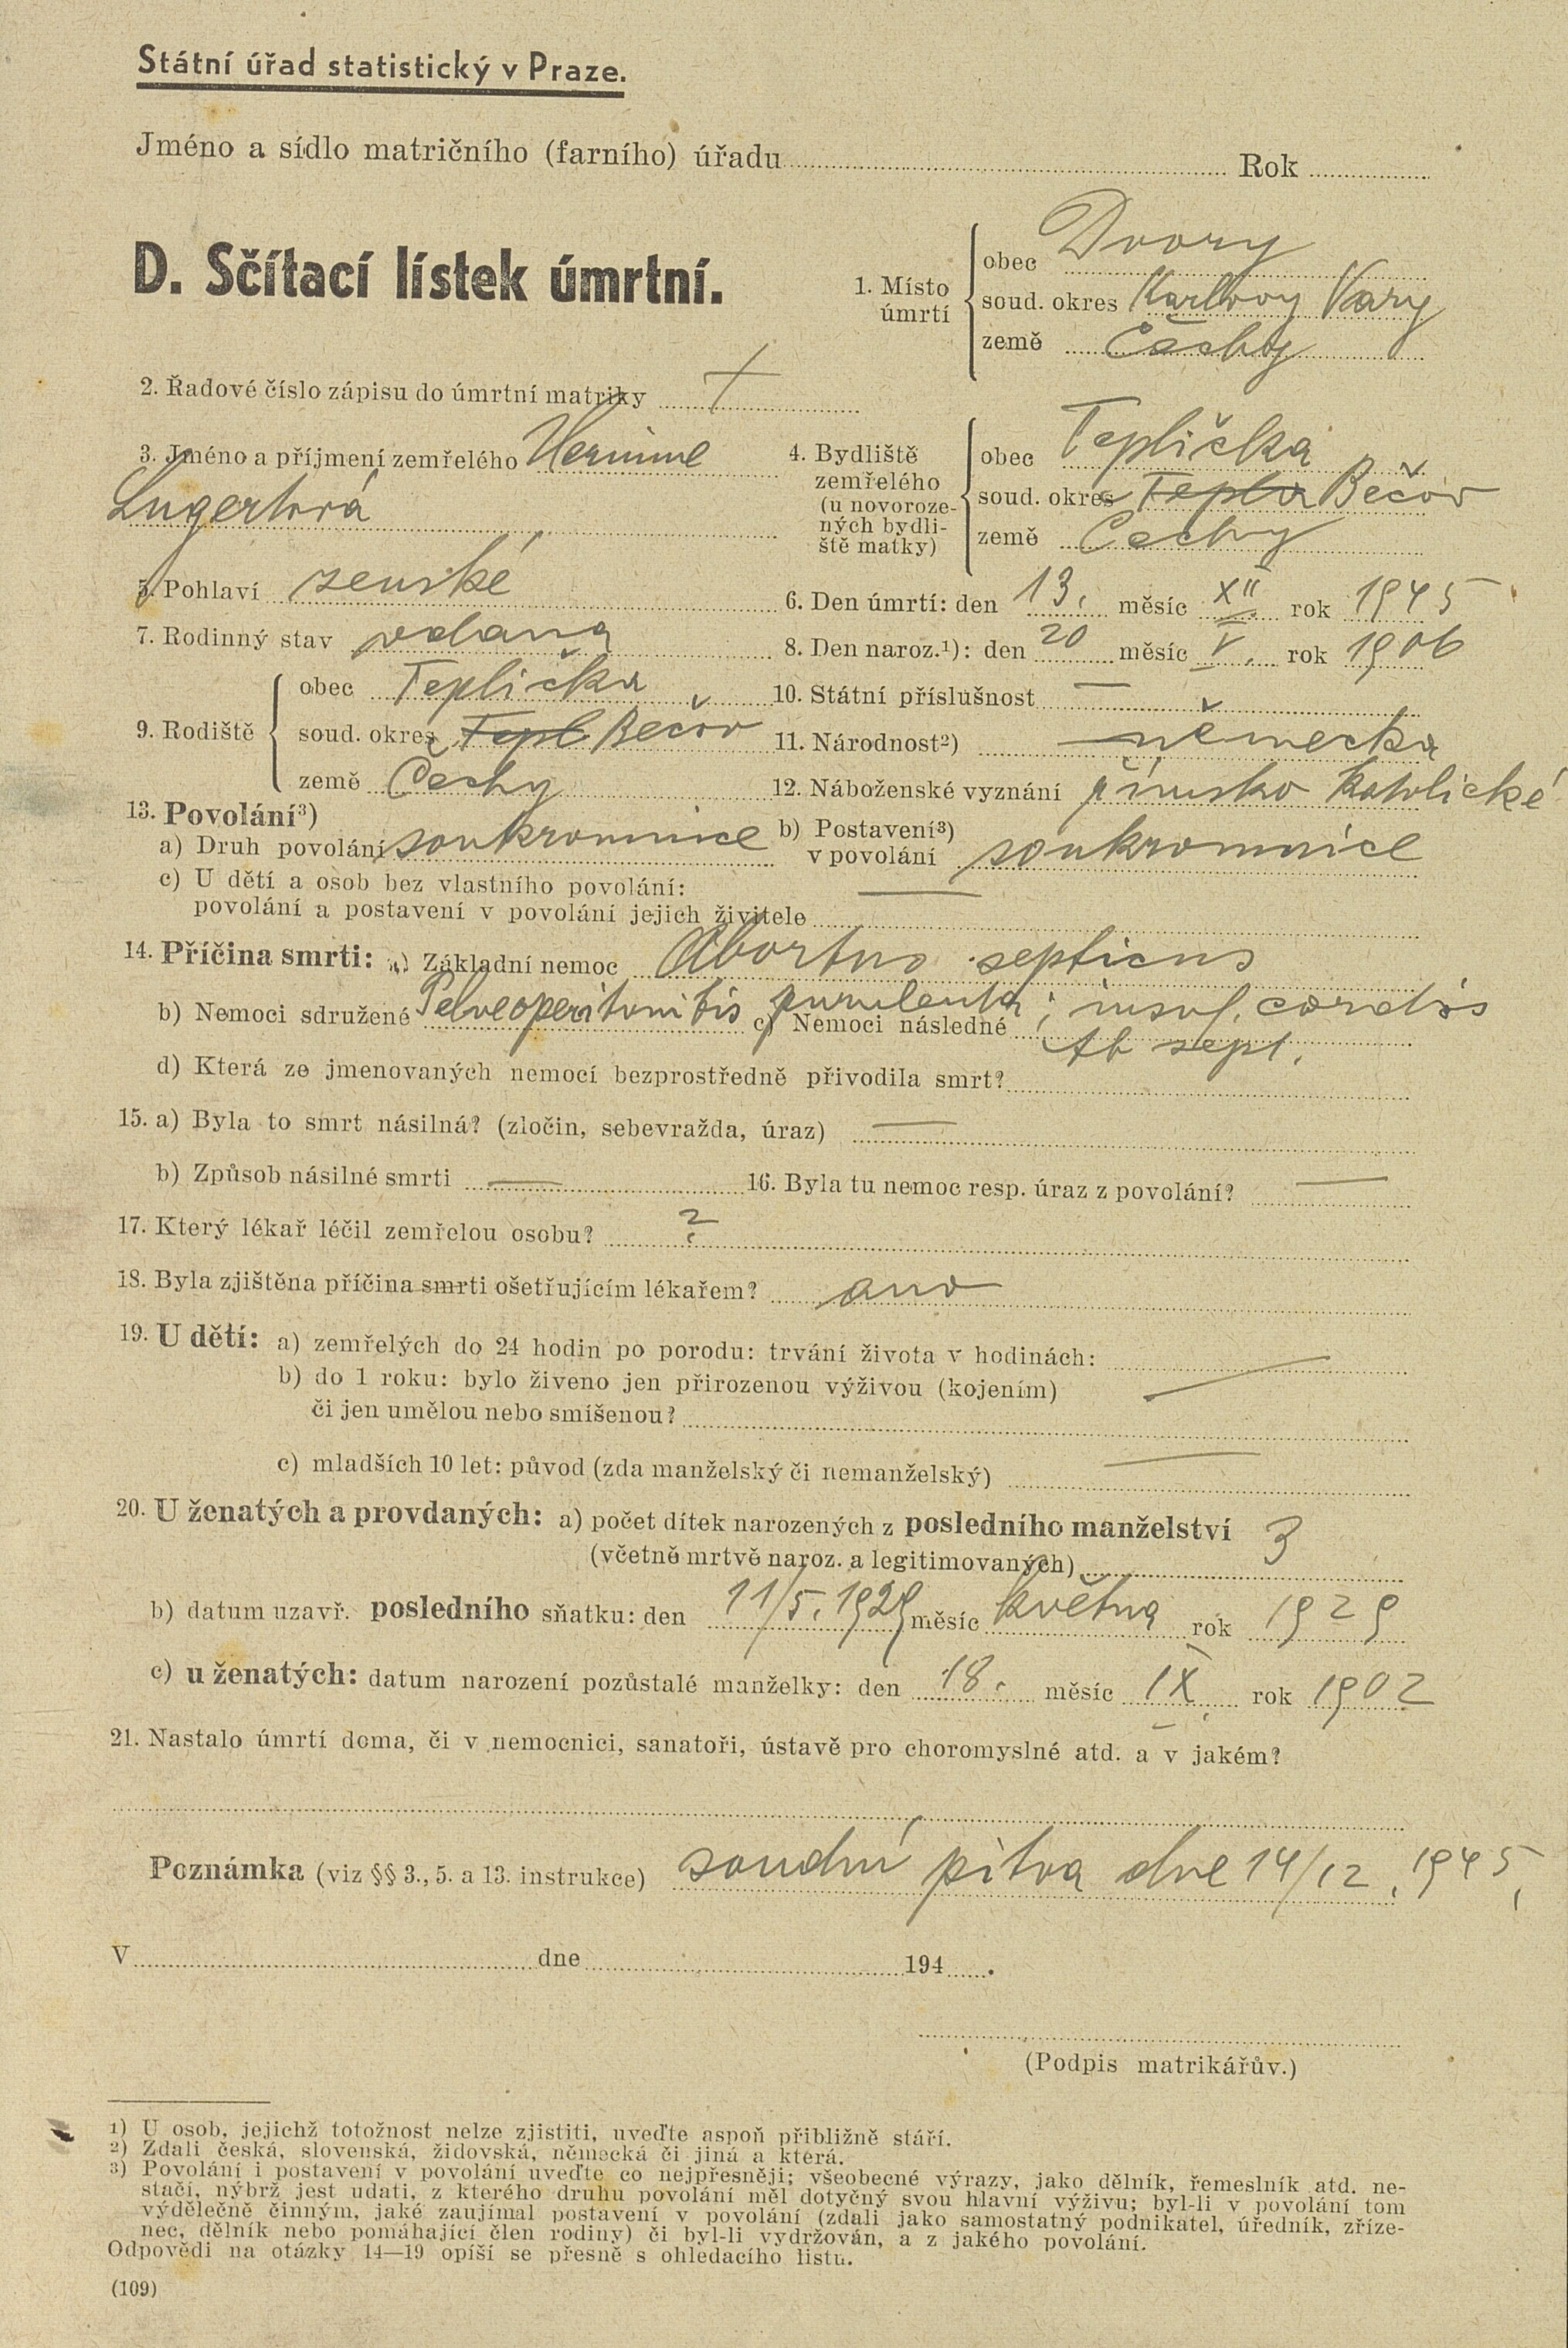 Státní úřad statistický v Praze.
Jméno a sídlo matričního (farního) úřadu Rok
D. Sčítací lístek úmrtní.
1. Místo úmrtí
obec Dvory
soud. okres Karlovy Vary
země Čechy
2. Řadové číslo zápisu do úmrtní matriky
3. Jméno a příjmení zemřelého Hermine
Lugertová
4. Bydliště zemřelého (u novorozených bydliště matky)
obec Teplička
soud. okres Tepla Bečov
země Čechy
5. Pohlaví ženské
6. Den úmrtí: den 13. měsíc XII. rok 1945
7. Rodinný stav vdaná
8. Den naroz.¹): den 20 měsíc V. rok 1906
9. Rodiště
obec Teplička
soud. okres Tepl Bečov
země Čechy
10. Státní příslušnost —
11. Národnost²) německa
12. Náboženské vyznání římsko katolické
13. Povolání³)
a) Druh povolání soukromnice
b) Postavení³) v povolání soukromnice
c) U dětí a osob bez vlastního povolání:
povolání a postavení v povolání jejich živitele —
14. Příčina smrti: a) Základní nemoc Abortus septicus
b) Nemoci sdružené Pelveoperitonitis purulenta; c) Nemoci následné insuf. cordis
d) Která ze jmenovaných nemocí bezprostředně přivodila smrt? Ab sept.
15. a) Byla to smrt násilná? (zločin, sebevražda, úraz) —
b) Způsob násilné smrti — 16. Byla tu nemoc resp. úraz z povolání? —
17. Který lékař léčil zemřelou osobu? ?
18. Byla zjištěna příčina smrti ošetřujícím lékařem? ano
19. U dětí: a) zemřelých do 24 hodin po porodu: trvání života v hodinách: —
b) do 1 roku: bylo živeno jen přirozenou výživou (kojením)
či jen umělou nebo smíšenou?
c) mladších 10 let: původ (zda manželský či nemanželský) —
20. U ženatých a provdaných: a) počet dítek narozených z posledního manželství 3
(včetně mrtvě naroz. a legitimovaných)
b) datum uzavř. posledního sňatku: den 11/5. 1929 měsíc května rok 1929
c) u ženatých: datum narození pozůstalé manželky: den 18. měsíc IX. rok 1902
21. Nastalo úmrtí doma, či v nemocnici, sanatoři, ústavě pro choromyslné atd. a v jakém?
Poznámka (viz §§ 3., 5. a 13. instrukce) soudní pitva dne 14/12. 1945.
V dne 194 .
(Podpis matrikářův.)
1) U osob, jejichž totožnost nelze zjistiti, uveďte aspoň přibližně stáří.
2) Zdali česká, slovenská, židovská, německá či jiná a která.
3) Povolání i postavení v povolání uveďte co nejpřesněji; všeobecné výrazy, jako dělník, řemeslník atd. ne-
stačí, nýbrž jest udati, z kterého druhu povolání měl dotyčný svou hlavní výživu; byl-li v povolání tom
výdělečně činným, jaké zaujímal postavení v povolání (zdali jako samostatný podnikatel, úředník, zříze-
nec, dělník nebo pomáhající člen rodiny) či byl-li vydržován, a z jakého povolání.
Odpovědi na otázky 14—19 opíší se přesně s ohledacího listu.
(109)